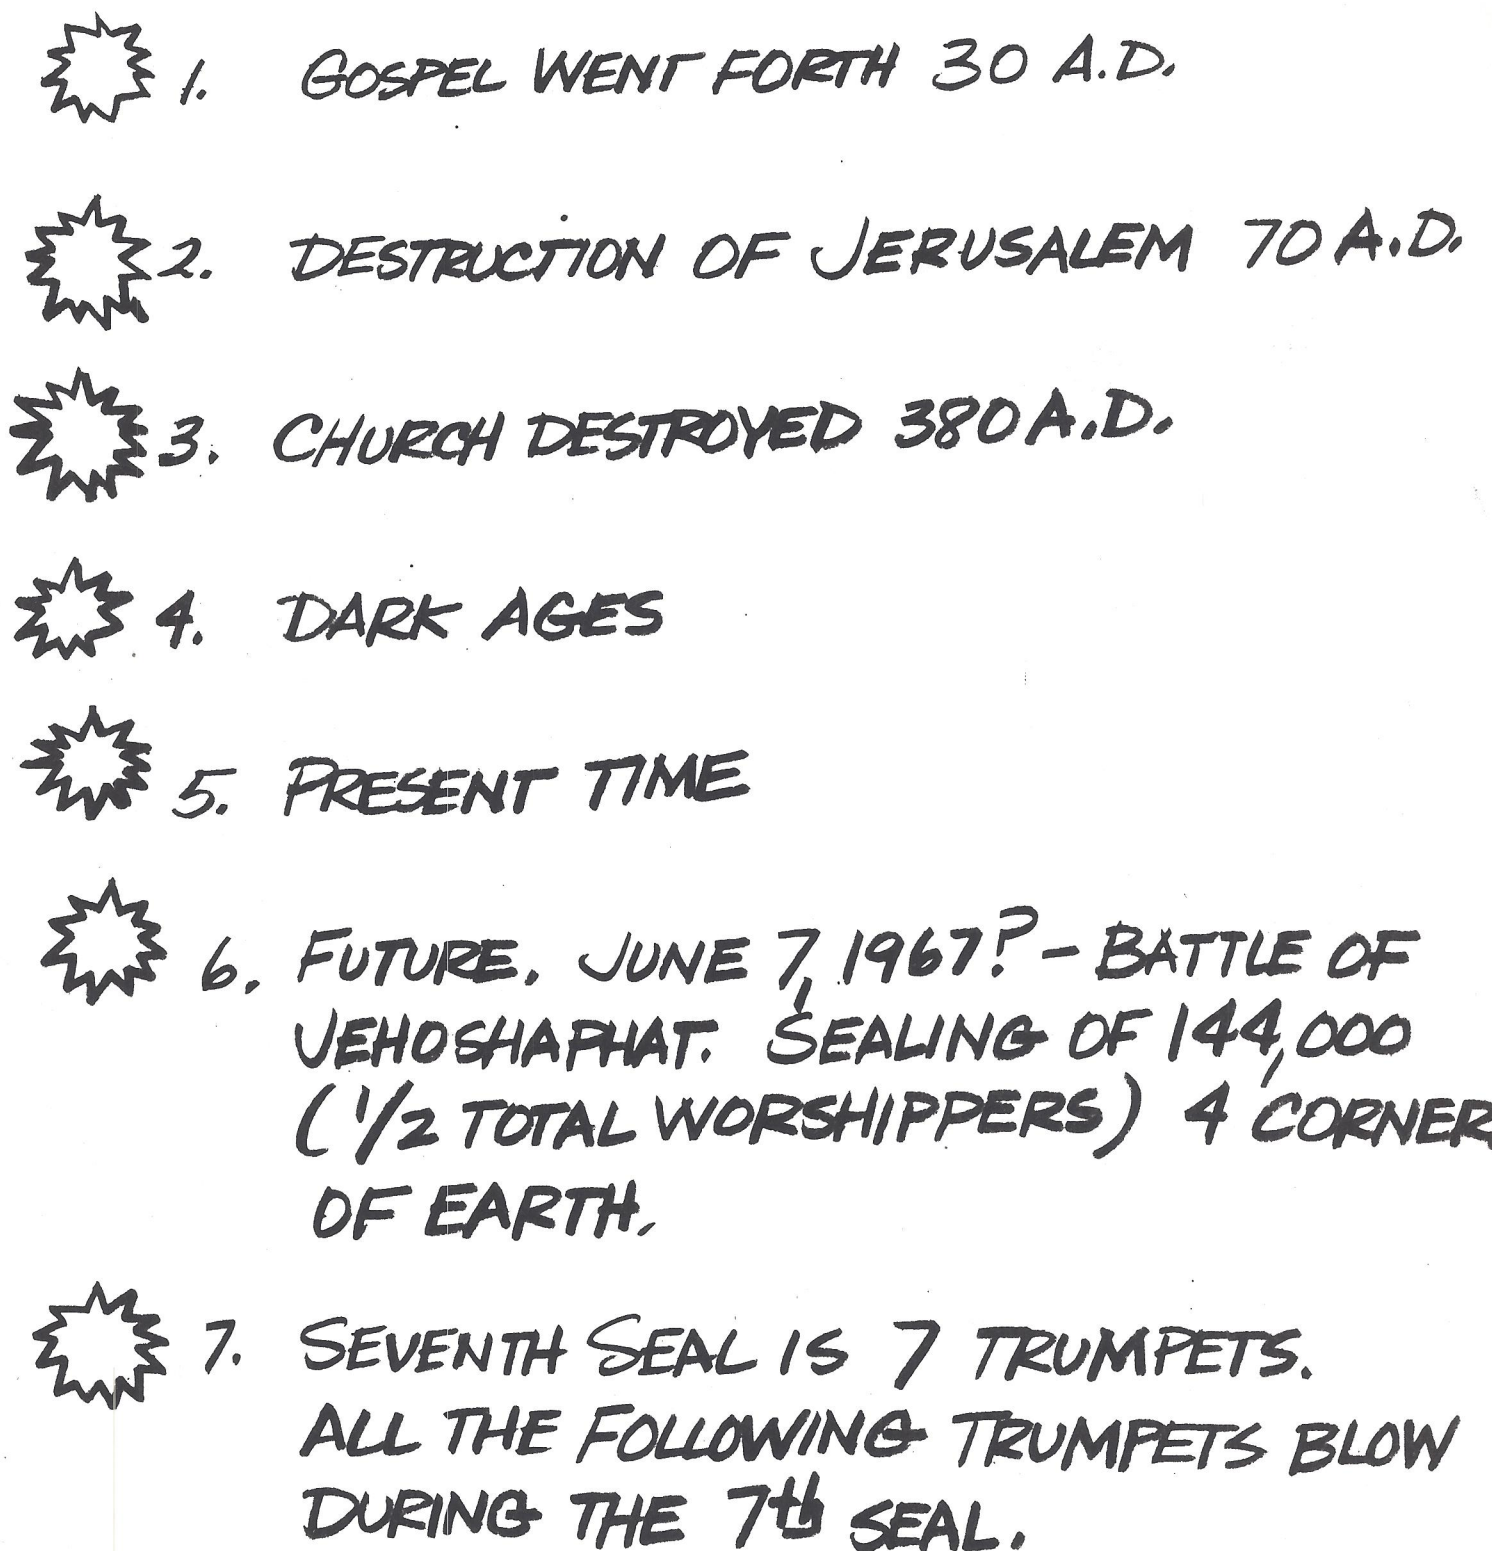 1. GOSPEL WENT FORTH 30 A.D.
2. DESTRUCTION OF JERUSALEM 70 A.D.
3. CHURCH DESTROYED 380 A.D.
4. DARK AGES
5. PRESENT TIME
6. FUTURE, JUNE 7, 1967? - BATTLE OF
JEHOSHAPHAT. SEALING OF 144,000
(1/2 TOTAL WORSHIPPERS) 4 CORNERS
OF EARTH.
7. SEVENTH SEAL IS 7 TRUMPETS.
ALL THE FOLLOWING TRUMPETS BLOW
DURING THE 7th SEAL.